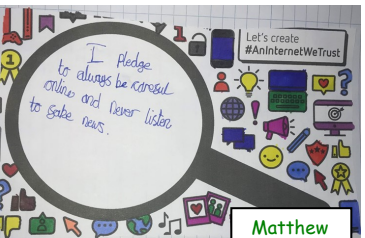 Let's create
#AnInternetWeTrust
I pledge
to always be careful
online and never listen
to fake news.
Matthew